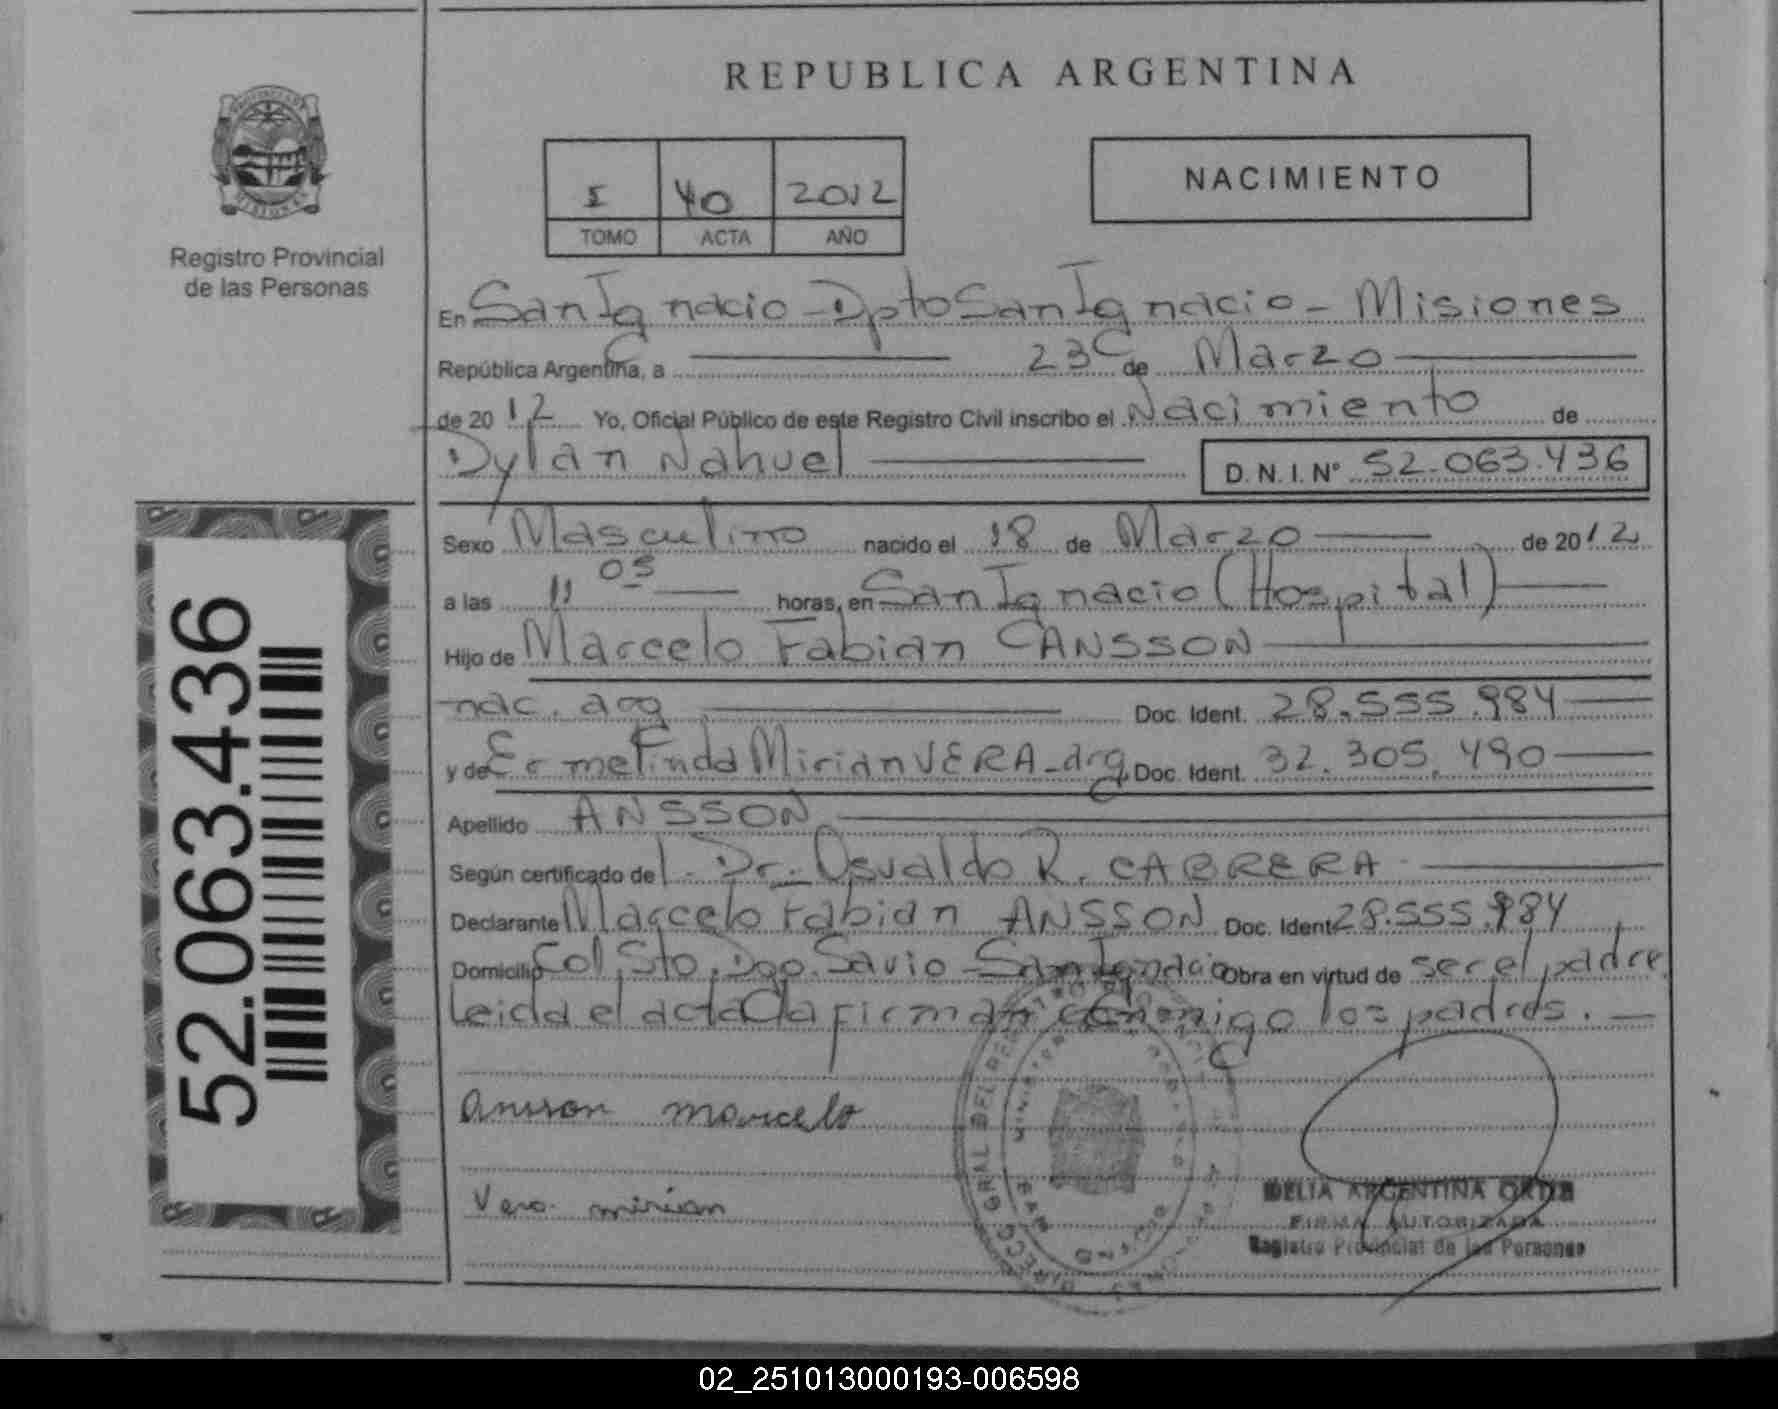 REPUBLICA ARGENTINA
PROVINCIA DE
MISIONES
Registro Provincial
de las Personas
I 40 2012
TOMO ACTA AÑO
NACIMIENTO
En San Ignacio - Dpto San Ignacio - Misiones
República Argentina, a 23 de Marzo
de 2012 Yo, Oficial Público de este Registro Civil inscribo el Nacimiento de
Dylan Nahuel D.N.I. Nº 52.063.436
Sexo Masculino nacido el 18 de Marzo de 2012
a las 11 05 horas, en San Ignacio (Hospital)
Hijo de Marcelo Fabian ANSSON
nac. arg Doc. Ident. 28.555.984
y de Ermelinda Mirian VERA - arg Doc. Ident. 32.305.490
Apellido ANSSON
Según certificado del Dr. Osvaldo R. CABRERA
Declarante Marcelo Fabian ANSSON Doc. Ident 28.555.984
Domicilio Col. Sto. Dgo. Savio - San Ignacio Obra en virtud de ser el padre
leida el acta la firman conmigo los padres.
Ansson marcelo
Vera mirian
DELIA ARGENTINA ORTIZ
FIRMA AUTORIZADA
Registro Provincial de las Personas
52.063.436
02_251013000193-006598